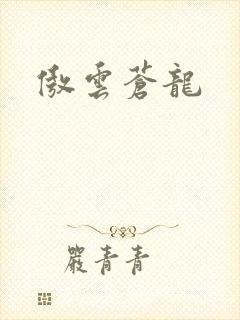 傲雲蒼龍
嚴青青